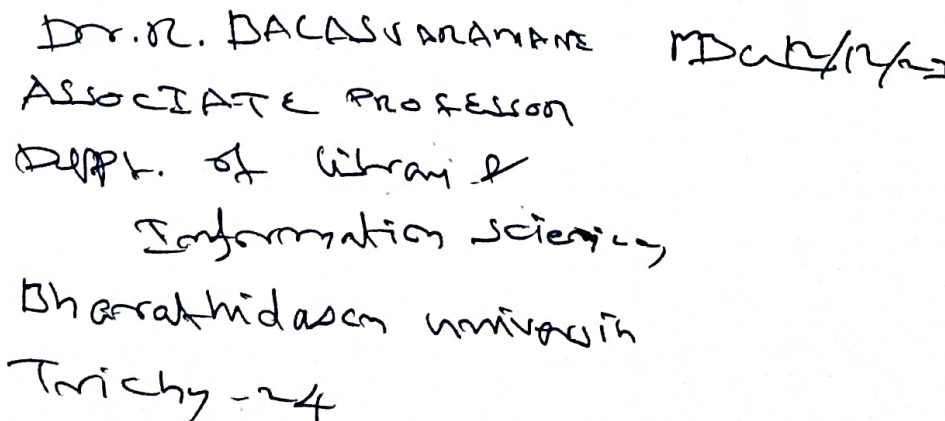 Dr. R. BALASUBRAMANE
ASSOCIATE PROFESSOR
Deppt. of Library &
Information Science,
Bharathidasan University
Trichy - 24